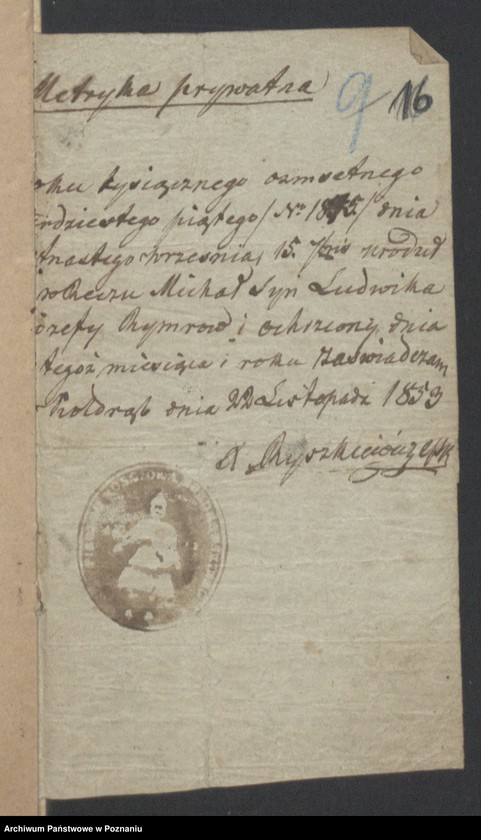 Metryka prywatna
9 16
oku tysiącznego ośmsetnego
rdziestego piątego / No 1845 / dnia
tnastego września, 15. 7bris urodził
w Michał Syn Ludwika
ózefy Rymrow i ochrzcony dnia
tegoż miesiąca i roku zaświadczam
Kołdrąb dnia 22 Listopada 1853
X Ryszkiewicz
Archiwum Państwowe w Poznaniu